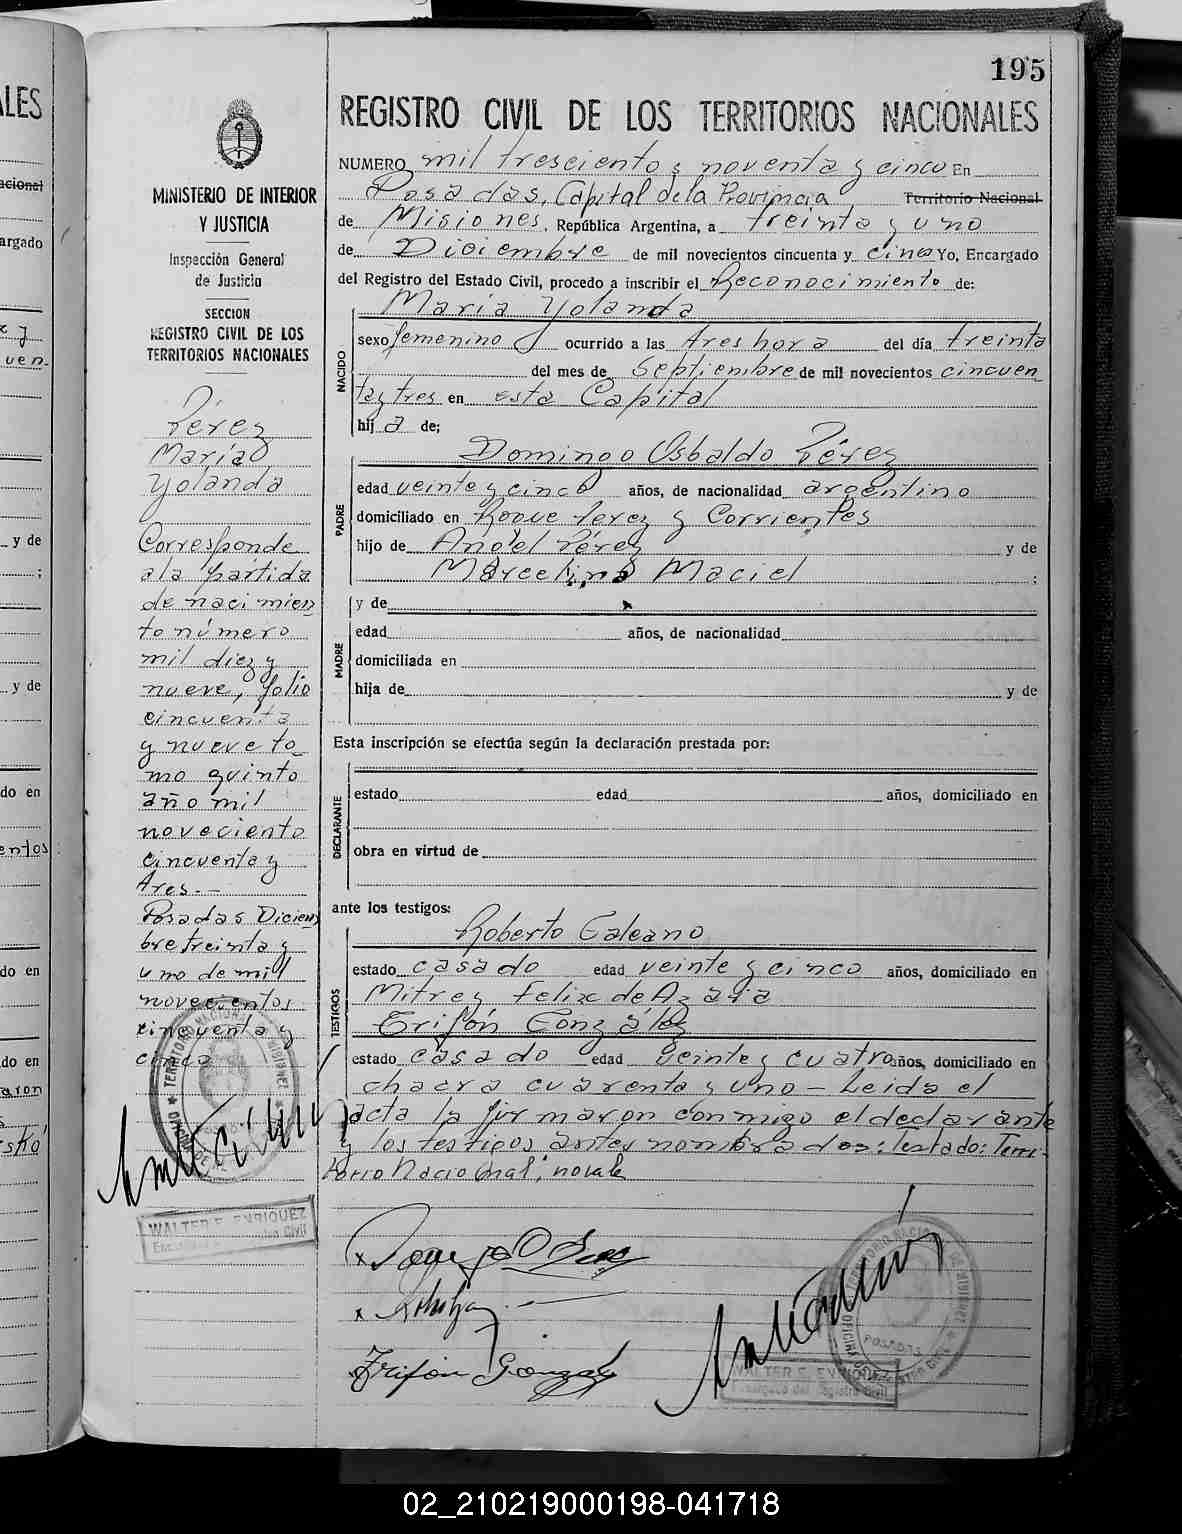 195
REGISTRO CIVIL DE LOS TERRITORIOS NACIONALES
MINISTERIO DE INTERIOR
Y JUSTICIA
Inspección General
de Justicia
SECCION
REGISTRO CIVIL DE LOS
TERRITORIOS NACIONALES
Pérez
María
Yolanda
Corresponde
a la partida
de nacimien
to número
mil diez y
nueve, folio
cincuenta
y nueve to
mo quinto
año mil
noveciento
cincuenta y
tres.-
Posadas Diciem
bre treinta y
uno de mil
novecientos
cincuenta y
cinco
WALTER E. ENRIQUEZ
NUMERO mil trescientos noventa y cinco En
Posadas, Capital de la Provincia Territorio Nacional
de Misiones, República Argentina, a treinta y uno
de Diciembre de mil novecientos cincuenta y cinco Yo, Encargado
del Registro del Estado Civil, procedo a inscribir el Reconocimiento de:
María Yolanda
NACIDO
sexo femenino ocurrido a las tres hora del día treinta
del mes de Septiembre de mil novecientos cincuen
ta y tres en esta Capital
hij a de;
PADRE
Domingo Osbaldo Pérez
edad veinte y cinco años, de nacionalidad argentino
domiciliado en Roque Perez y Corrientes
hijo de Angel Pérez y de
Marcelina Maciel ;
MADRE
y de
edad años, de nacionalidad
domiciliada en
hija de y de
Esta inscripción se efectúa según la declaración prestada por:
DECLARANTE
estado edad años, domiciliado en
obra en virtud de
ante los testigos:
TESTIGOS
Roberto Galeano
estado casado edad veinte y cinco años, domiciliado en
Mitre y Felix de Azara
Trifón González
estado casado edad veinte y cuatro años, domiciliado en
chacra cuarenta y uno - Leida el
acta la firmaron conmigo el declarante
y los testigos antes nombrados: Testado: Terri-
torio Nacional: no vale
Trifón Gonzalez
POSADAS
WALTER E. ENRIQUEZ
Encargado del Registro Civil
02_210219000198-041718